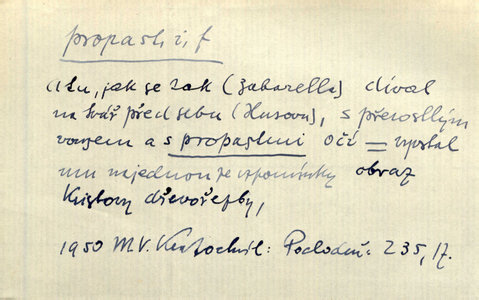 propast i, f
A tu, jak se tak (Zabarella) díval
na tvář před sebou (Husovu), s přerostlým
vousem a s propastmi očí = vyvstal
mu najednou ze vzpomínky obraz
Kristovy dřevořezby,
1950 M.V. Kratochvíl: Pochodeň: 235, 17.